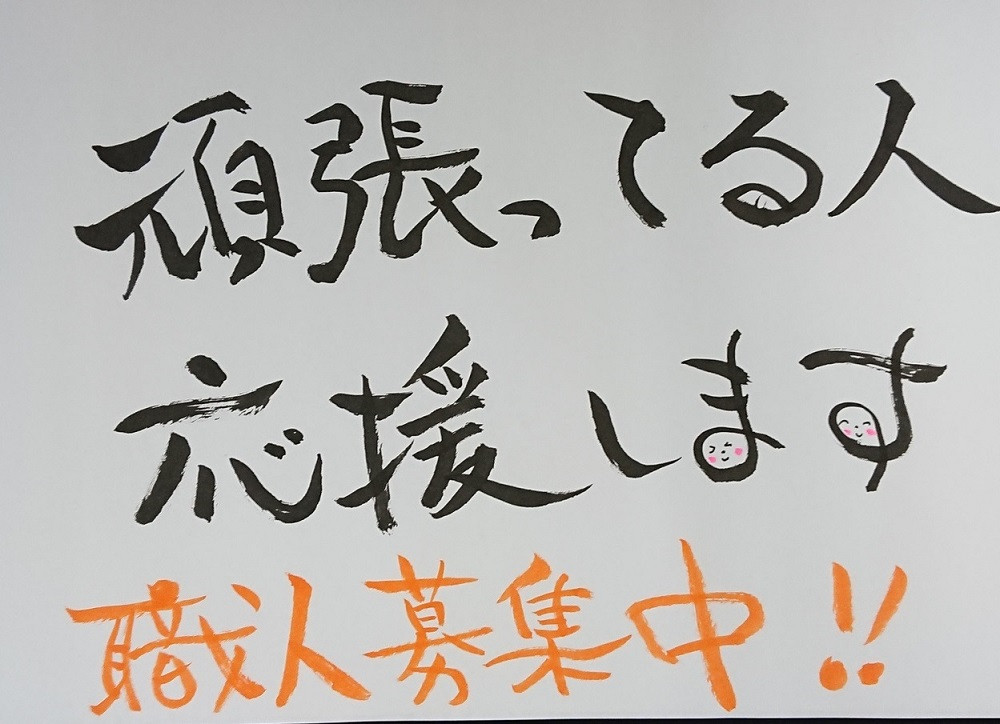 頑張ってる人
応援します
職人募集中!!